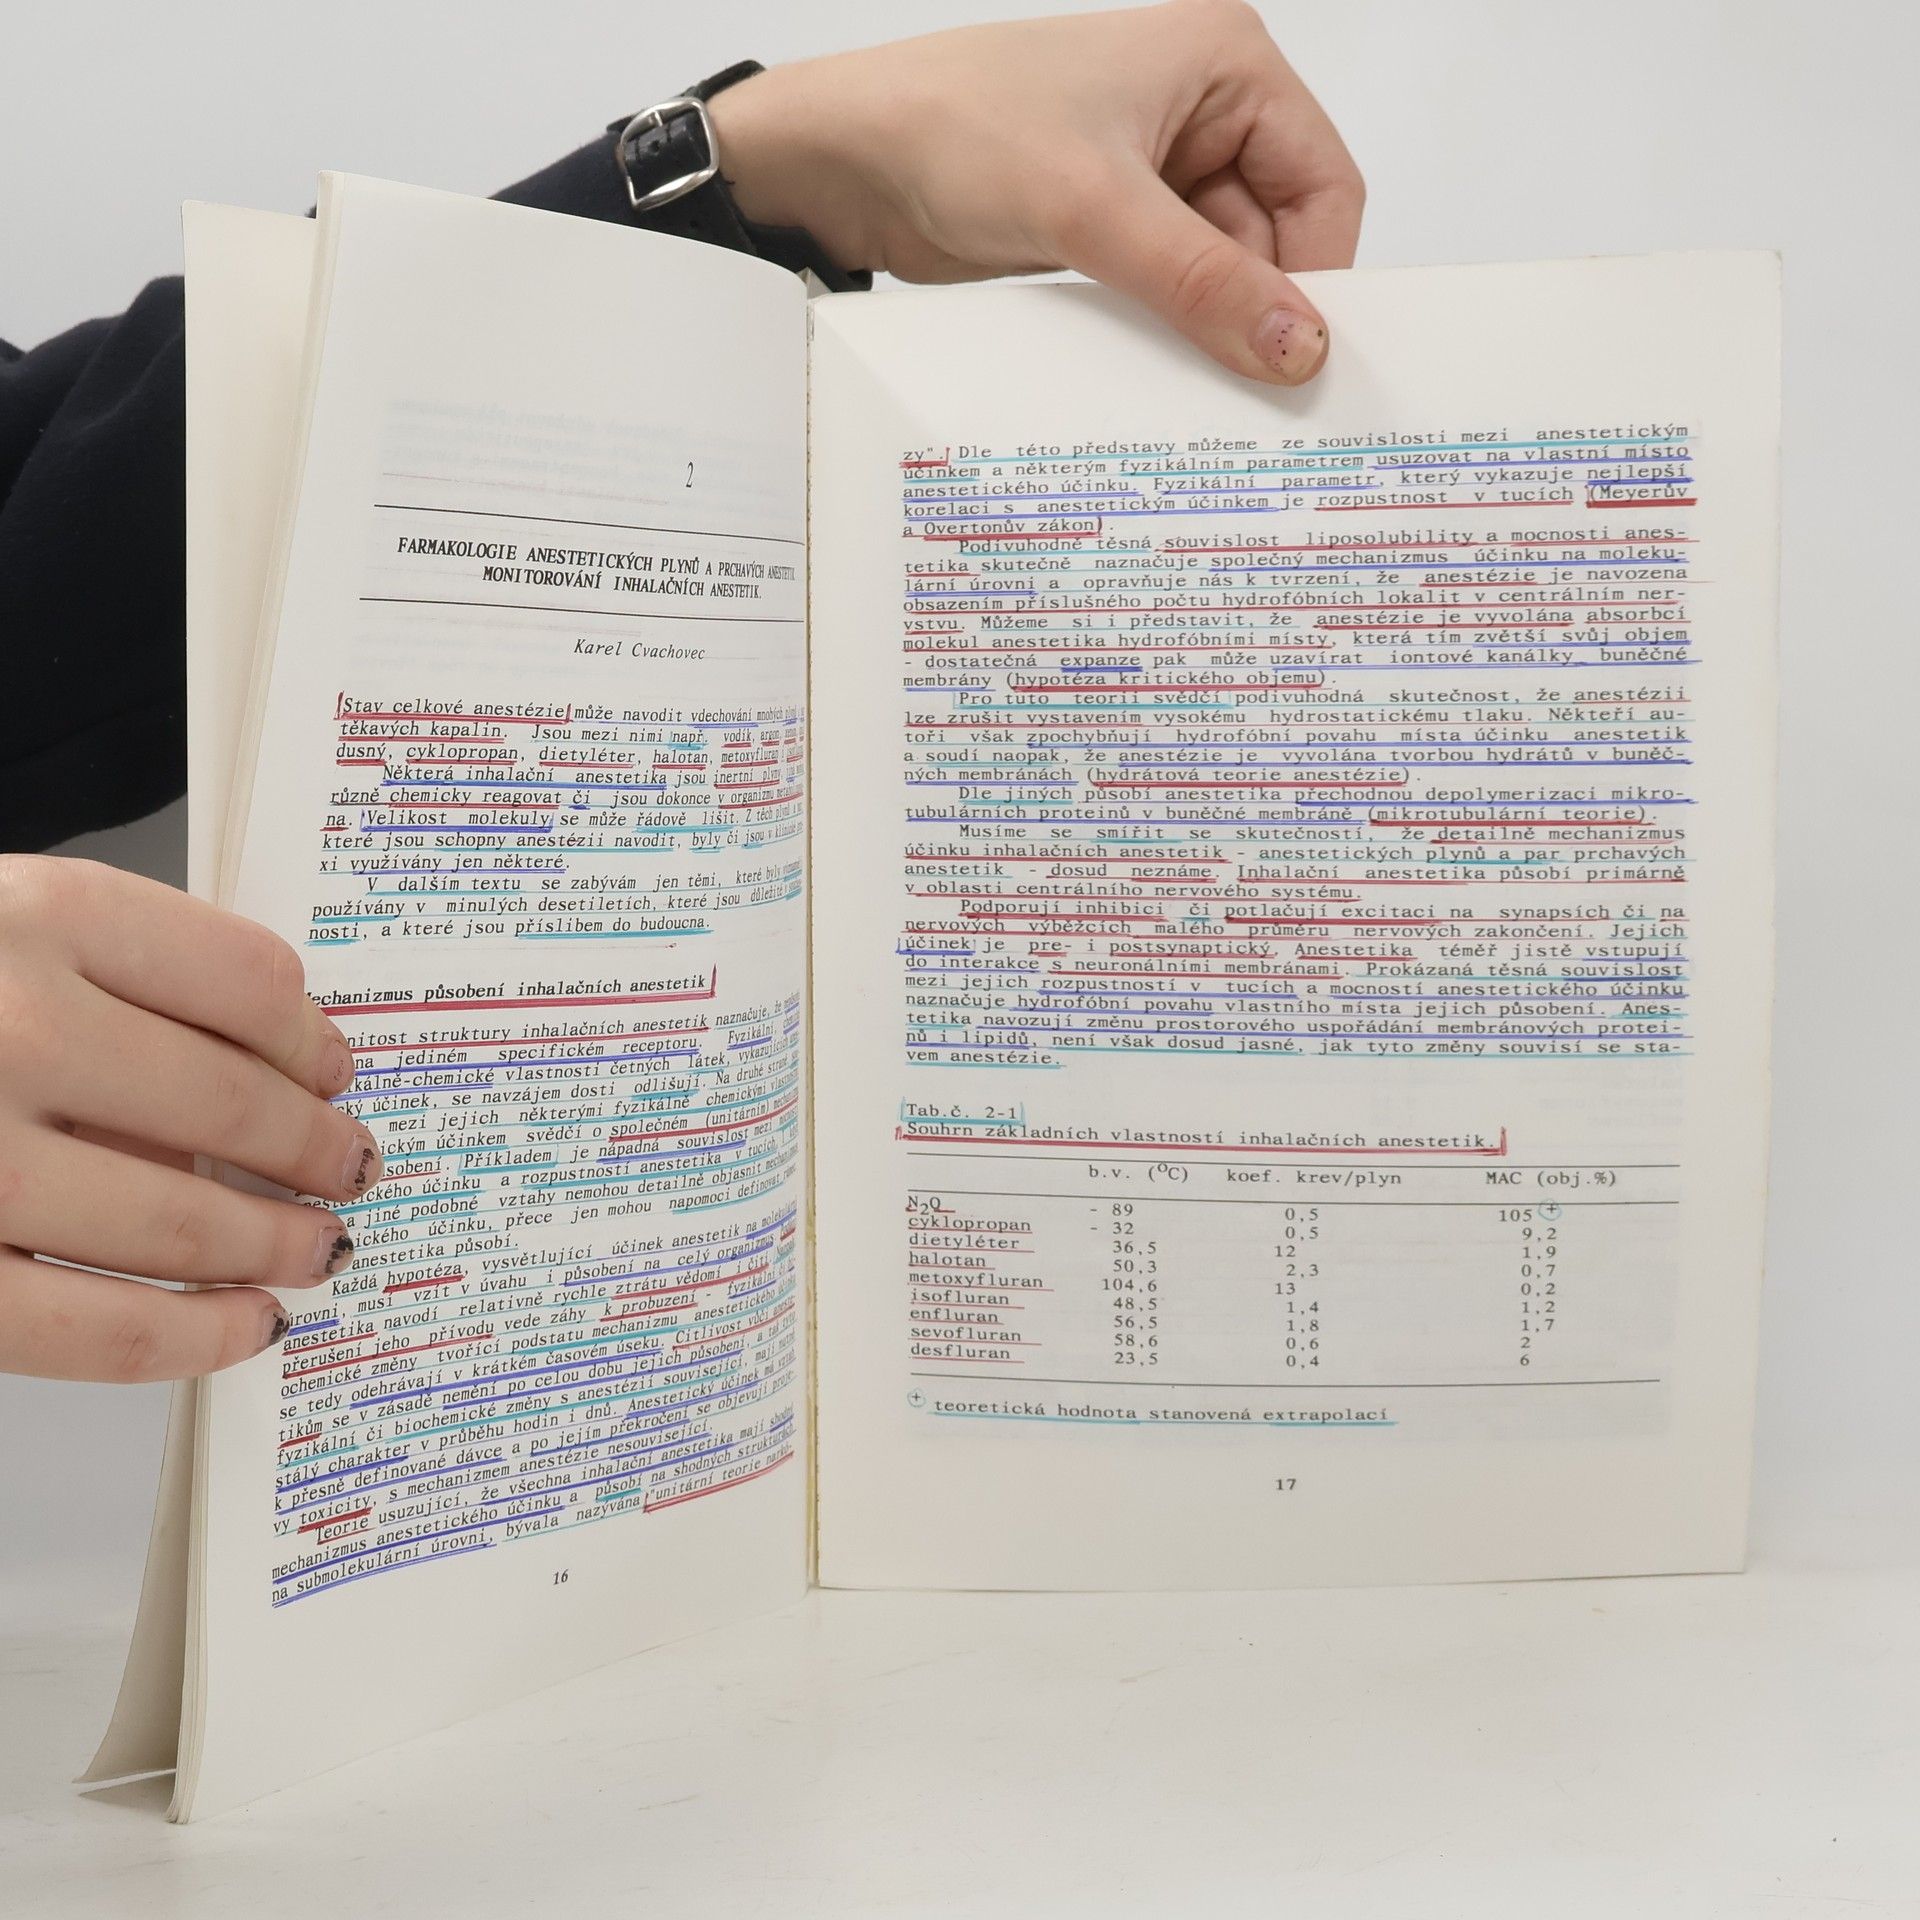 2
FARMAKOLOGIE ANESTETICKÝCH PLYNŮ A PRCHAVÝCH ANESTETIK.
MONITOROVÁNÍ INHALAČNÍCH ANESTETIK.
Karel Cvachovec
Stav celkové anestézie může navodit vdechování mnohých plynů
těkavých kapalin. Jsou mezi nimi např. vodík, argon, xenon,
dusný, cyklopropan, dietyléter, halotan, metoxyfluran
Některá inhalační anestetika jsou inertní plyny,
různě chemicky reagovat či jsou dokonce v organizmu
na. Velikost molekuly se může řádově lišit. Z těch
které jsou schopny anestézii navodit, byly či jsou v klinické
xi využívány jen některé.
V dalším textu se zabývám jen těmi, které byly
používány v minulých desetiletích, které jsou důležité v
nosti, a které jsou příslibem do budoucna.
Mechanizmus působení inhalačních anestetik
nitost struktury inhalačních anestetik naznačuje, že
na jediném specifickém receptoru. Fyzikální,
ikálně-chemické vlastnosti četných látek, vykazujících
cký účinek, se navzájem dosti odlišují. Na druhé straně
mezi jejich některými fyzikálně chemickými
ickým účinkem svědčí o společném (unitárním)
sobení. Příkladem je nápadná souvislost mezi
ckého účinku a rozpustností anestetika v tucích.
a jiné podobné vztahy nemohou detailně objasnit
ického účinku, přece jen mohou napomoci definovat
anestetika působí.
Každá hypotéza, vysvětlující účinek anestetik na molekulární
úrovni, musí vzít v úvahu i působení na celý organizmus
anestetika navodí relativně rychle ztrátu vědomí i čití.
přerušení jeho přívodu vede záhy k probuzení - fyzikální či
ochemické změny tvořící podstatu mechanizmu anestetického účinku
se tedy odehrávají v krátkém časovém úseku. Citlivost vůči
tikům se v zásadě nemění po celou dobu jejich působení, a tak
fyzikální či biochemické změny s anestézií související, mají
stálý charakter v průběhu hodin i dnů. Anestetický účinek má vztah
k přesně definované dávce a po jejím překročení se objevují proje-
vy toxicity, s mechanizmem anestézie nesouvisející.
Teorie usuzující, že všechna inhalační anestetika mají shodný
mechanizmus anestetického účinku a působí na shodných strukturách
na submolekulární úrovni, bývala nazývána "unitární teorie narkó-
16
zy". Dle této představy můžeme ze souvislosti mezi anestetickým
účinkem a některým fyzikálním parametrem usuzovat na vlastní místo
anestetického účinku. Fyzikální parametr, který vykazuje nejlepší
korelaci s anestetickým účinkem je rozpustnost v tucích (Meyerův
a Overtonův zákon).
Podivuhodně těsná souvislost liposolubility a mocnosti anes-
tetika skutečně naznačuje společný mechanizmus účinku na moleku-
lární úrovni a opravňuje nás k tvrzení, že anestézie je navozena
obsazením příslušného počtu hydrofóbních lokalit v centrálním ner-
vstvu. Můžeme si i představit, že anestézie je vyvolána absorbcí
molekul anestetika hydrofóbními místy, která tím zvětší svůj objem
- dostatečná expanze pak může uzavírat iontové kanálky buněčné
membrány (hypotéza kritického objemu).
Pro tuto teorii svědčí podivuhodná skutečnost, že anestézii
lze zrušit vystavením vysokému hydrostatickému tlaku. Někteří au-
toři však zpochybňují hydrofóbní povahu místa účinku anestetik
a soudí naopak, že anestézie je vyvolána tvorbou hydrátů v buněč-
ných membránách (hydrátová teorie anestézie).
Dle jiných působí anestetika přechodnou depolymerizaci mikro-
tubulárních proteinů v buněčné membráně (mikrotubulární teorie).
Musíme se smířit se skutečností, že detailně mechanizmus
účinku inhalačních anestetik - anestetických plynů a par prchavých
anestetik - dosud neznáme. Inhalační anestetika působí primárně
v oblasti centrálního nervového systému.
Podporují inhibici či potlačují excitaci na synapsích či na
nervových výběžcích malého průměru nervových zakončení. Jejich
účinek je pre- i postsynaptický. Anestetika téměř jistě vstupují
do interakce s neuronálními membránami. Prokázaná těsná souvislost
mezi jejich rozpustností v tucích a mocností anestetického účinku
naznačuje hydrofóbní povahu vlastního místa jejich působení. Anes-
tetika navozují změnu prostorového uspořádání membránových protei-
nů i lipidů, není však dosud jasné, jak tyto změny souvisí se sta-
vem anestézie.
Tab.č. 2-1
Souhrn základních vlastností inhalačních anestetik.
b.v. (°C) koef. krev/plyn MAC (obj.%)
N2O - 89 0,5 105 +
cyklopropan - 32 0,5 9,2
dietyléter 36,5 12 1,9
halotan 50,3 2,3 0,7
metoxyfluran 104,6 13 0,2
isofluran 48,5 1,4 1,2
enfluran 56,5 1,8 1,7
sevofluran 58,6 0,6 2
desfluran 23,5 0,4 6
+ teoretická hodnota stanovená extrapolací
17